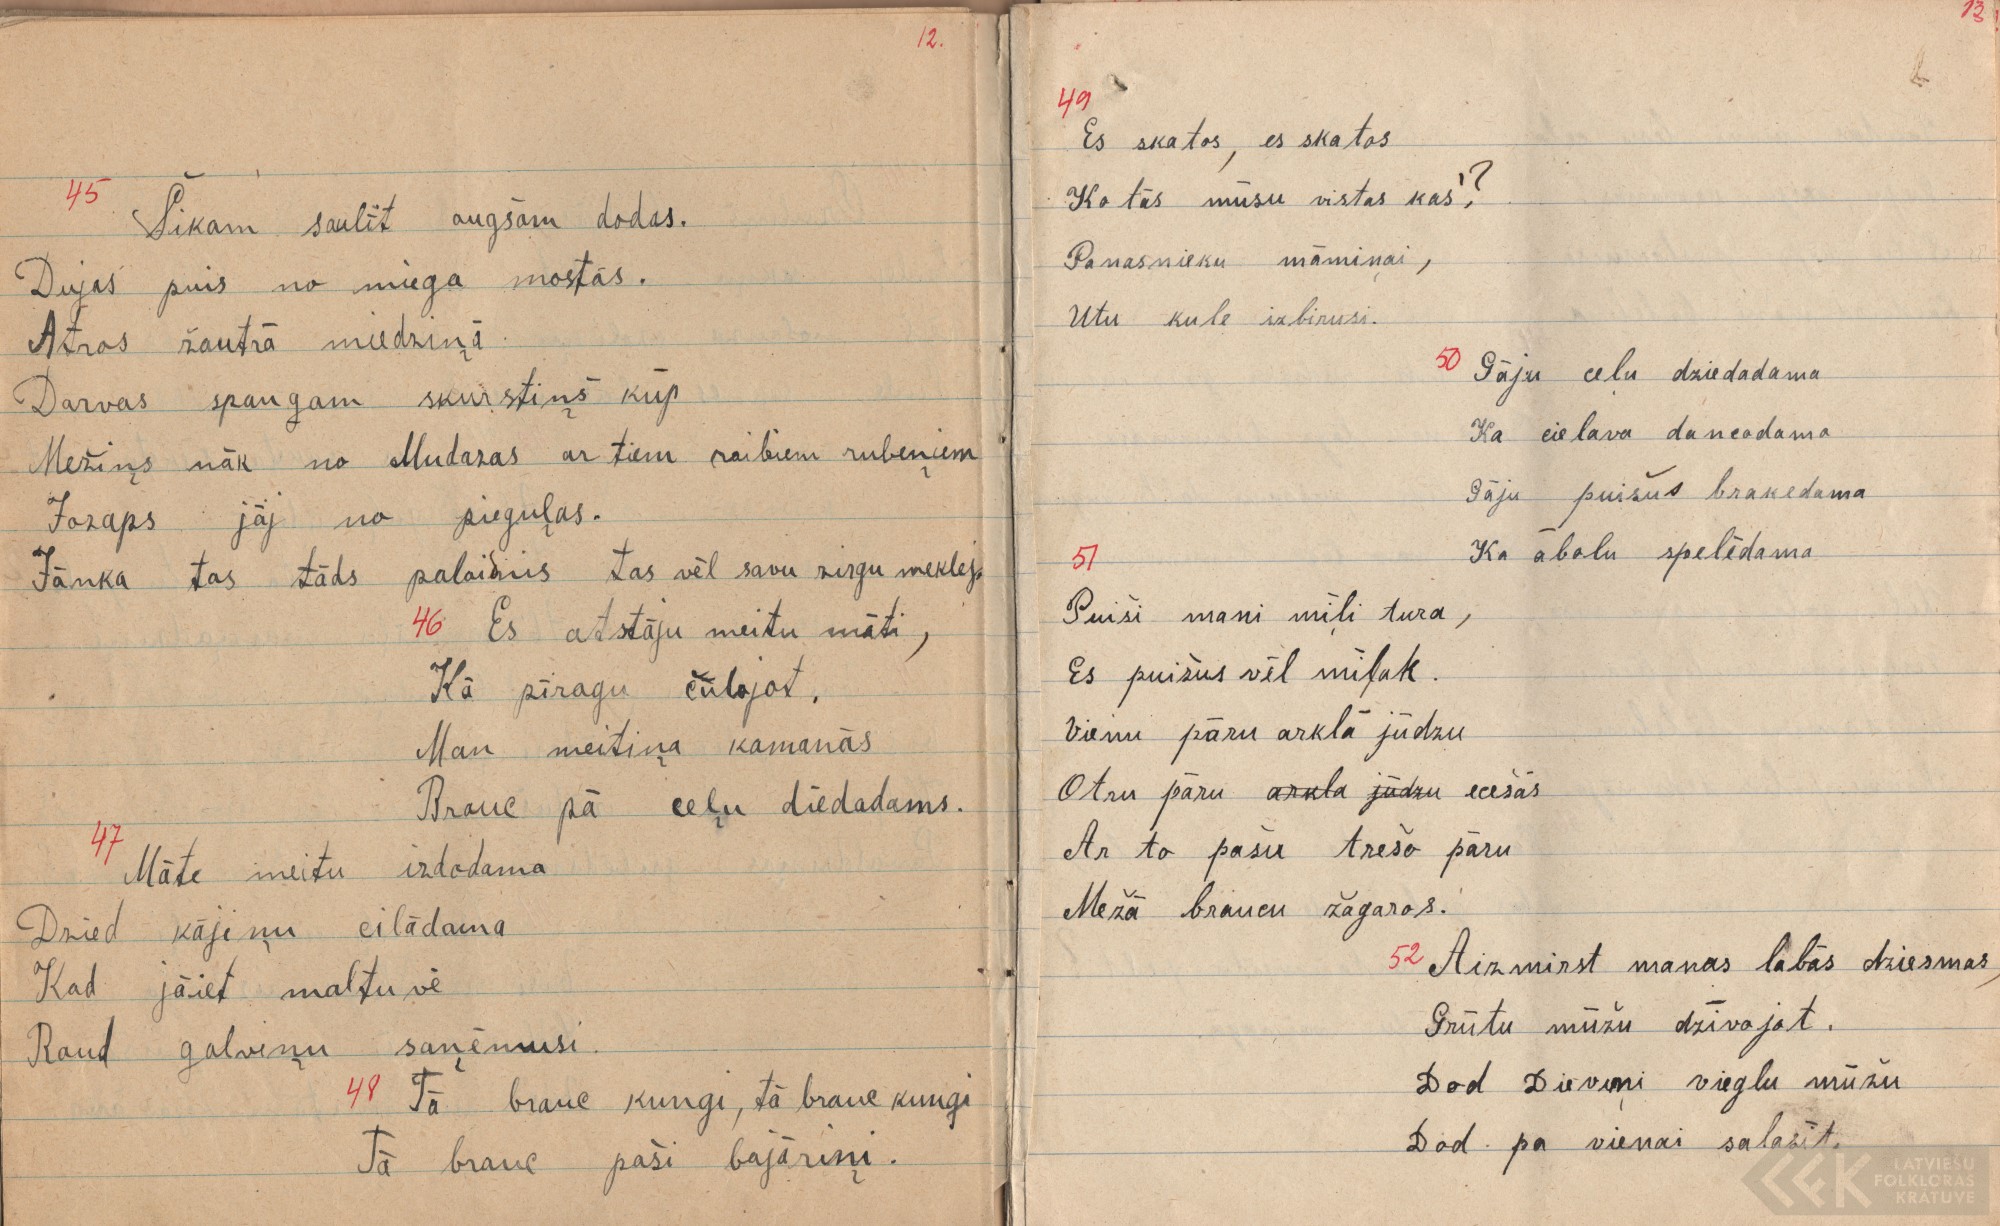 12.
45
Šikam saulīt augšām dodas.
Dujas puis no miega mostās.
Atros žautrā miedziņā
Darvas spaugam skurstiņš kūp
Mežiņs nāk no Mudazas ar tiem raibiem rubeņiem
Jozaps jāj no pieguļas.
Jānka tas tāds palaidnis tas vēl savu zirgu meklēj.
46 Es atstāju meitu māti,
Kā pīragu čūlojot.
Man meitiņa kamanās
Brauc pā ceļu diedadams.
47
Māte meitu izdodama
Dzied kājeņu cilādama
Kad jāiet maltuvē
Raud galveņu saņēmusi.
48 Tā brauc kungi, tā brauc kungi
Tā brauc paši bajāriņi.
13
49
Es skatos, es skatos
Ko tās mūsu vistas kaš?
Panasnieku māmiņai,
Utu kule izbirusi.
50 Gāju ceļu dziedadama
Ka cielava dancodama
Gāju puišus brakedama
Ka ābolu spelēdama
51
Puiši mani mīļi tura,
Es puišus vēl mīļak.
Vienu pāru arklā jūdzu
Otru pāru arkla jūdzu ecešās
Ar to pašu trešo pāru
Mežā braucu žagaros.
52 Aizmirst manas labās dziesmas,
Grūtu mūžu dzīvojot.
Dod Dieviņi vieglu mūžu
Dod pa vienai salasīt.
LATVIEŠU
FOLKLORAS
KRĀTUVE